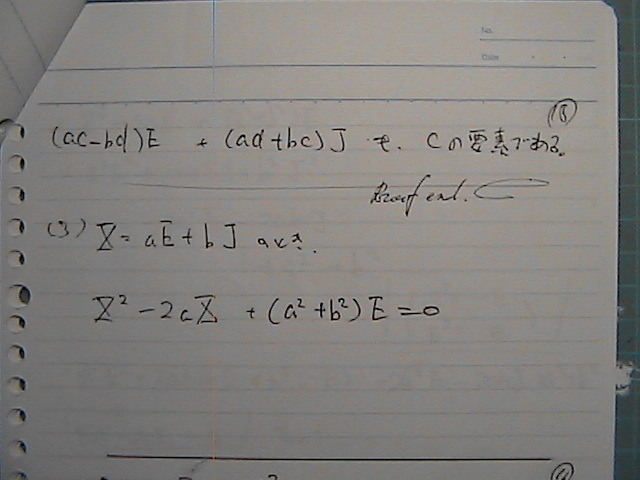 No.
Date
(18)
(ac-bd)E + (ad+bc)J も、Cの要素である。
Proof end.
(3) X = aE+bJ のとき.
X² - 2aX + (a²+b²)E = 0